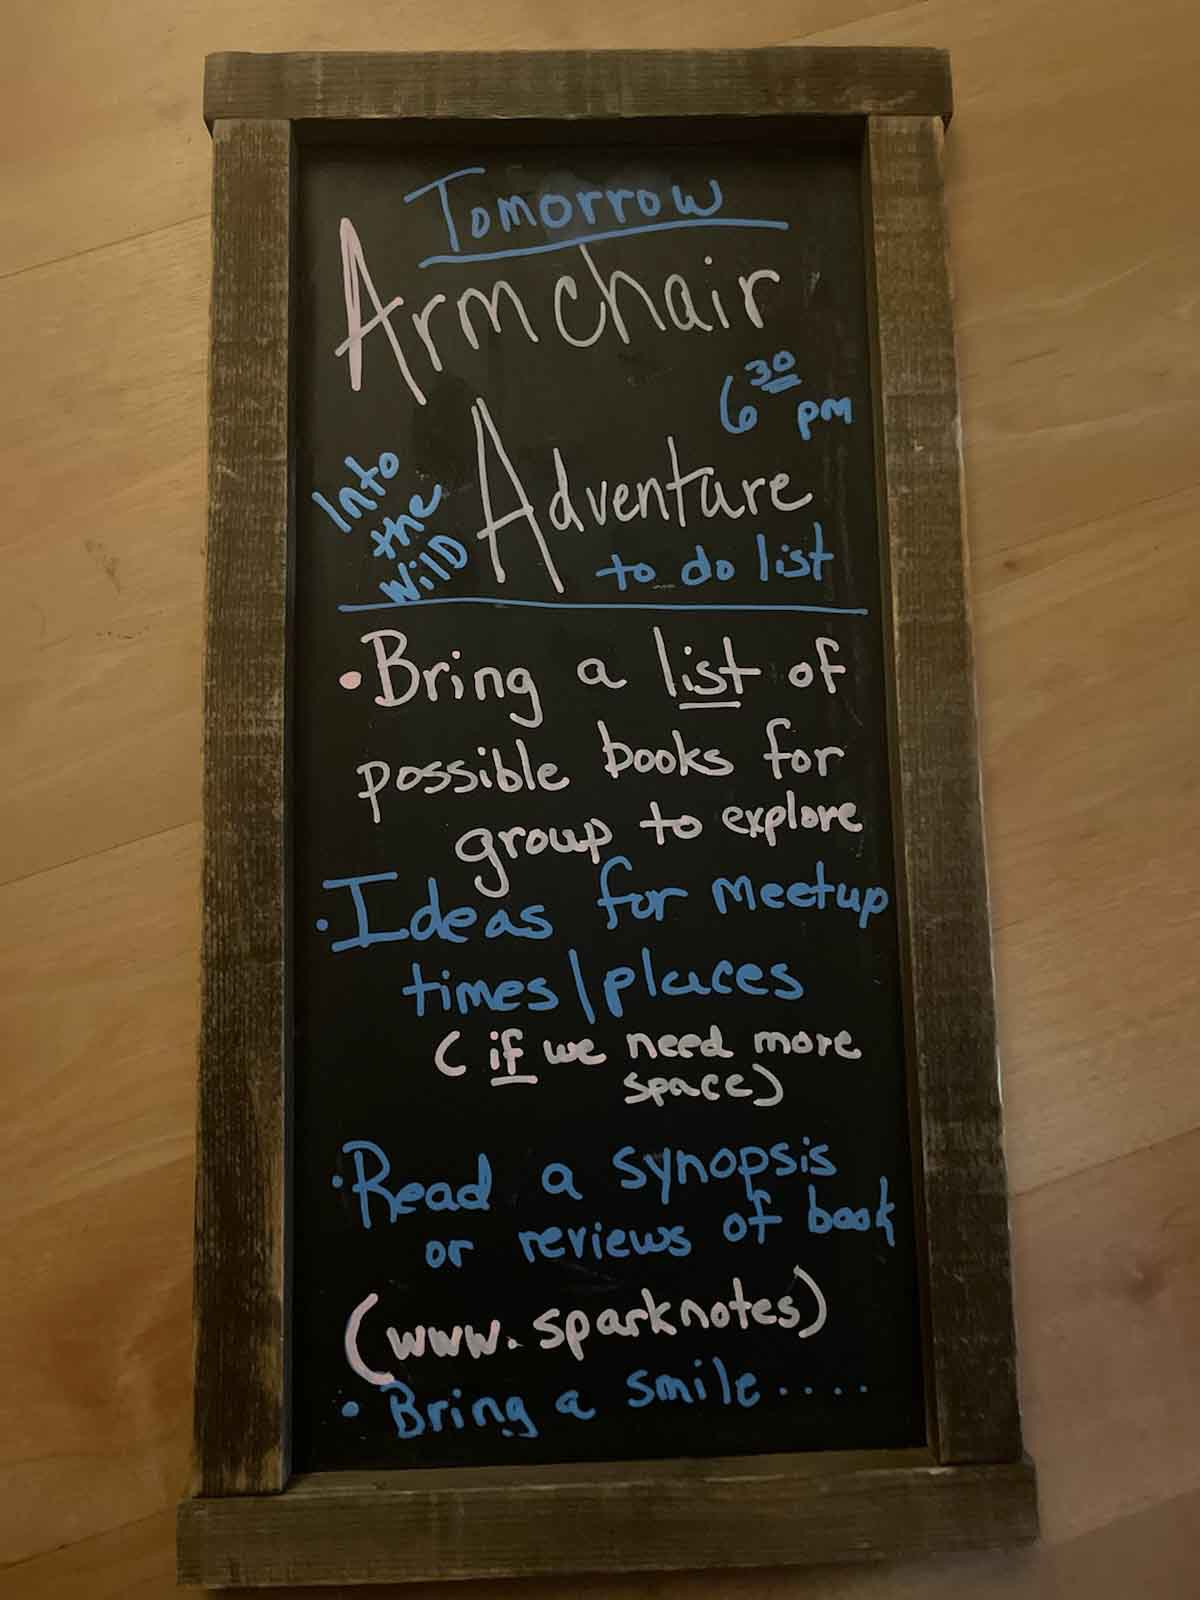 Tomorrow
Armchair
6³⁰ pm
Into
the
Wild
Adventure
to do list
• Bring a list of
possible books for
group to explore
• Ideas for meetup
times/places
(if we need more
space)
• Read a synopsis
or reviews of book
(www.sparknotes)
• Bring a smile....